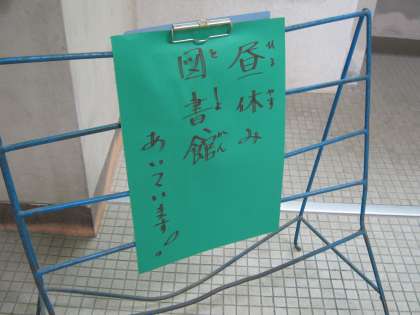 昼休み
図書館
あいています!!